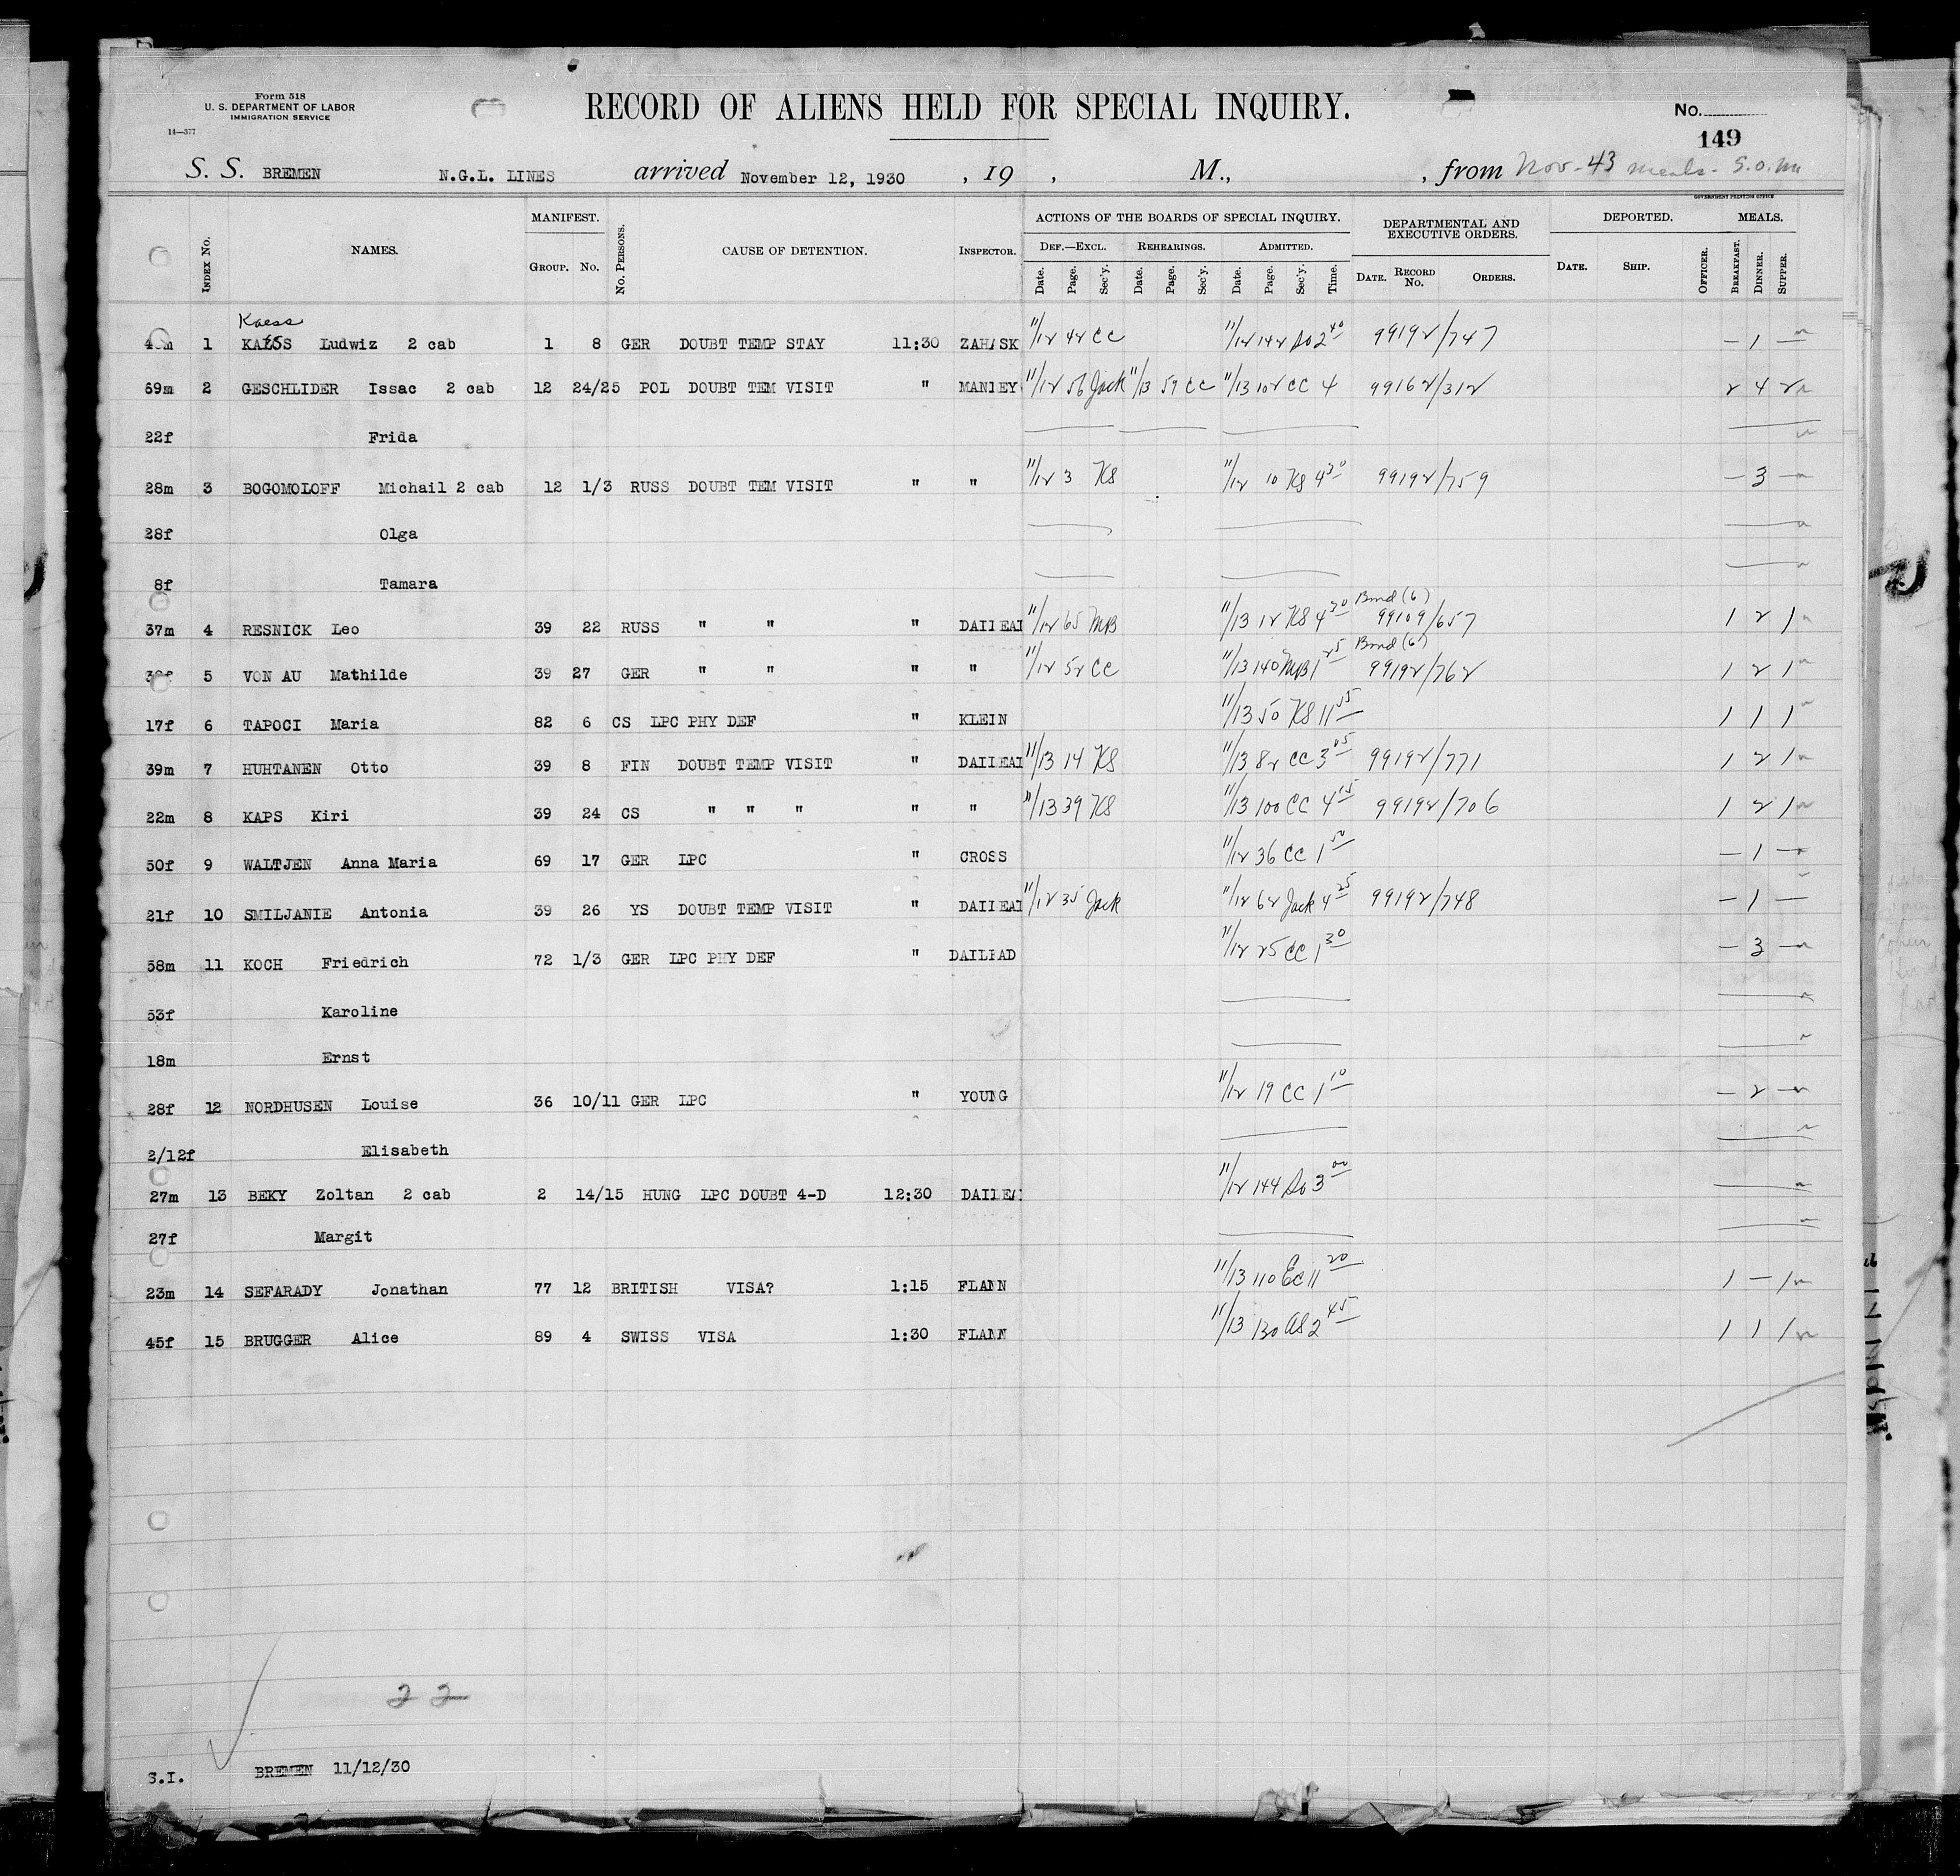 Form 518
U. S. DEPARTMENT OF LABOR
IMMIGRATION SERVICE
14—377
RECORD OF ALIENS HELD FOR SPECIAL INQUIRY.
No.
149
S. S. BREMEN N.G.L. LINES arrived November 12, 1930 , 19 , M., , from Nov. 43 meals. S.O.
GOVERNMENT PRINTING OFFICE
INDEX No. NAMES. MANIFEST. GROUP. No. No. PERSONS. CAUSE OF DETENTION. INSPECTOR. ACTIONS OF THE BOARDS OF SPECIAL INQUIRY. DEF.—EXCL. Date. Page. Sec'y. REHEARINGS. Date. Page. Sec'y. ADMITTED. Date. Page. Sec'y. Time. DEPARTMENTAL AND EXECUTIVE ORDERS. DATE. RECORD No. ORDERS. DEPORTED. DATE. SHIP. OFFICER. MEALS. BREAKFAST. DINNER. SUPPER.
Kaess
1 Ludwiz 2 cab 1 8 GER DOUBT TEMP STAY 11:30 11/12 42 CC 11/12 142 2 40 99192/747 — 1 —
69m 2 GESCHLIDER Issac 2 cab 12 24/25 POL DOUBT TEM VISIT " 11/12 56 Jack 11/13 59 CC 11/13 102 CC 4 99162/312 2 4 2
22f Frida
28m 3 BOGOMOLOFF Michail 2 cab 12 1/3 RUSS DOUBT TEM VISIT " " 11/12 3 KS 11/12 10 KS 4 30 99192/759 — 3 —
28f Olga
8f Tamara
Bond (6)
37m 4 RESNICK Leo 39 22 RUSS " " " 11/12 65 MB 11/13 12 KS 4 30 99109/657 1 2 1
Bond (6)
5 VON AU Mathilde 39 27 GER " " " " 11/12 52 CC 11/13 140 MB 1 25 99192/762 1 2 1
17f 6 TAPOCI Maria 82 6 CS LPC PHY DEF " KLEIN 11/13 50 KS 11 55 1 1 1
39m 7 HUHTANEN Otto 39 8 FIN DOUBT TEMP VISIT " 11/13 14 KS 11/13 82 CC 3 05 99192/771 1 2 1
22m 8 KAPS Kiri 39 24 CS " " " " " 11/13 39 KS 11/13 100 CC 4 15 99192/706 1 2 1
50f 9 WALTJEN Anna Maria 69 17 GER LPC " CROSS 11/12 36 CC 1 50 — 1 —
21f 10 SMILJANIE Antonia 39 26 YS DOUBT TEMP VISIT " 11/12 35 Jack 11/12 62 Jack 4 25 99192/748 — 1 —
58m 11 KOCH Friedrich 72 1/3 GER LPC PHY DEF " 11/12 25 CC 1 30 — 3 —
53f Karoline
18m Ernst
28f 12 NORDHUSEN Louise 36 10/11 GER LPC " YOUNG 11/12 19 CC 1 10 — 2 —
2/12f Elisabeth
27m 13 BEKY Zoltan 2 cab 2 14/15 HUNG LPC DOUBT 4-D 12:30 11/12 144 3 00
27f Margit
23m 14 SEFARADY Jonathan 77 12 BRITISH VISA? 1:15 FLANN 11/13 110 EC 11 20 1 — 1
45f 15 BRUGGER Alice 89 4 SWISS VISA 1:30 FLANN 11/13 130 AS 2 45 1 1 1
22
S.I. BREMEN 11/12/30